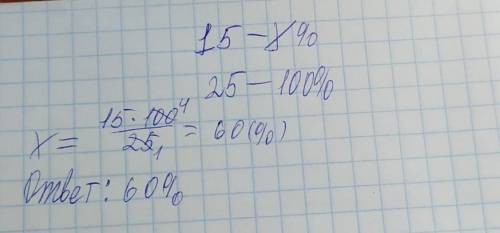 15 – x%
25 – 100%
x = 15 · 100⁴ / 25₁ = 60 (%)
Ответ: 60%